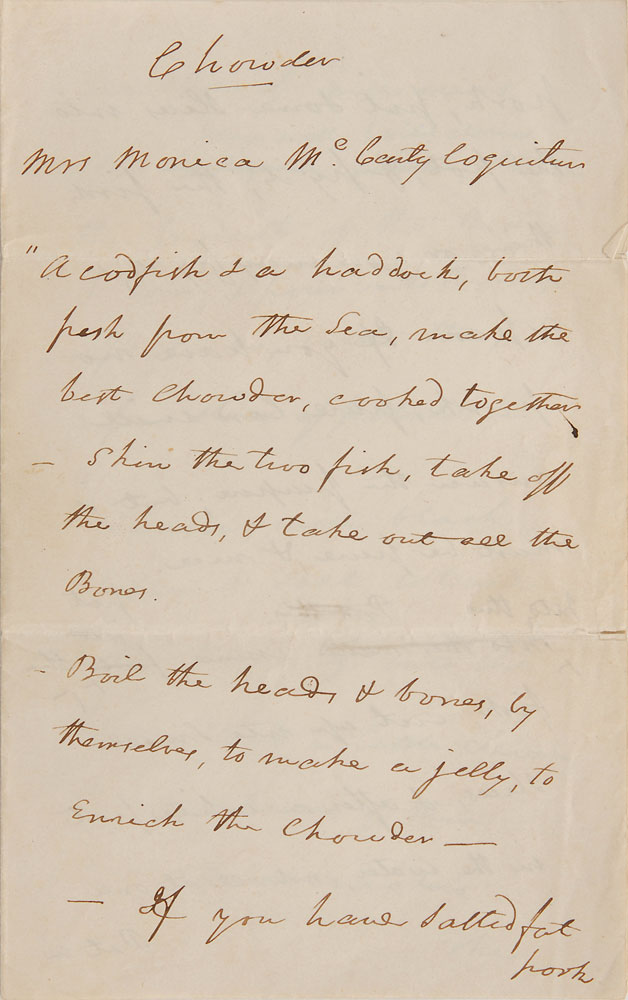 Chowder
Mrs Monica Mc. Carty loquitur
"A codfish & a haddock, both
fresh from the Sea, make the
best Chowder, cooked together
– Skin the two fish, take off
the heads, & take out all the
Bones.
- Boil the heads & bones, by
themselves, to make a jelly, to
Enrich the Chowder —
— If you have salted fat
pork